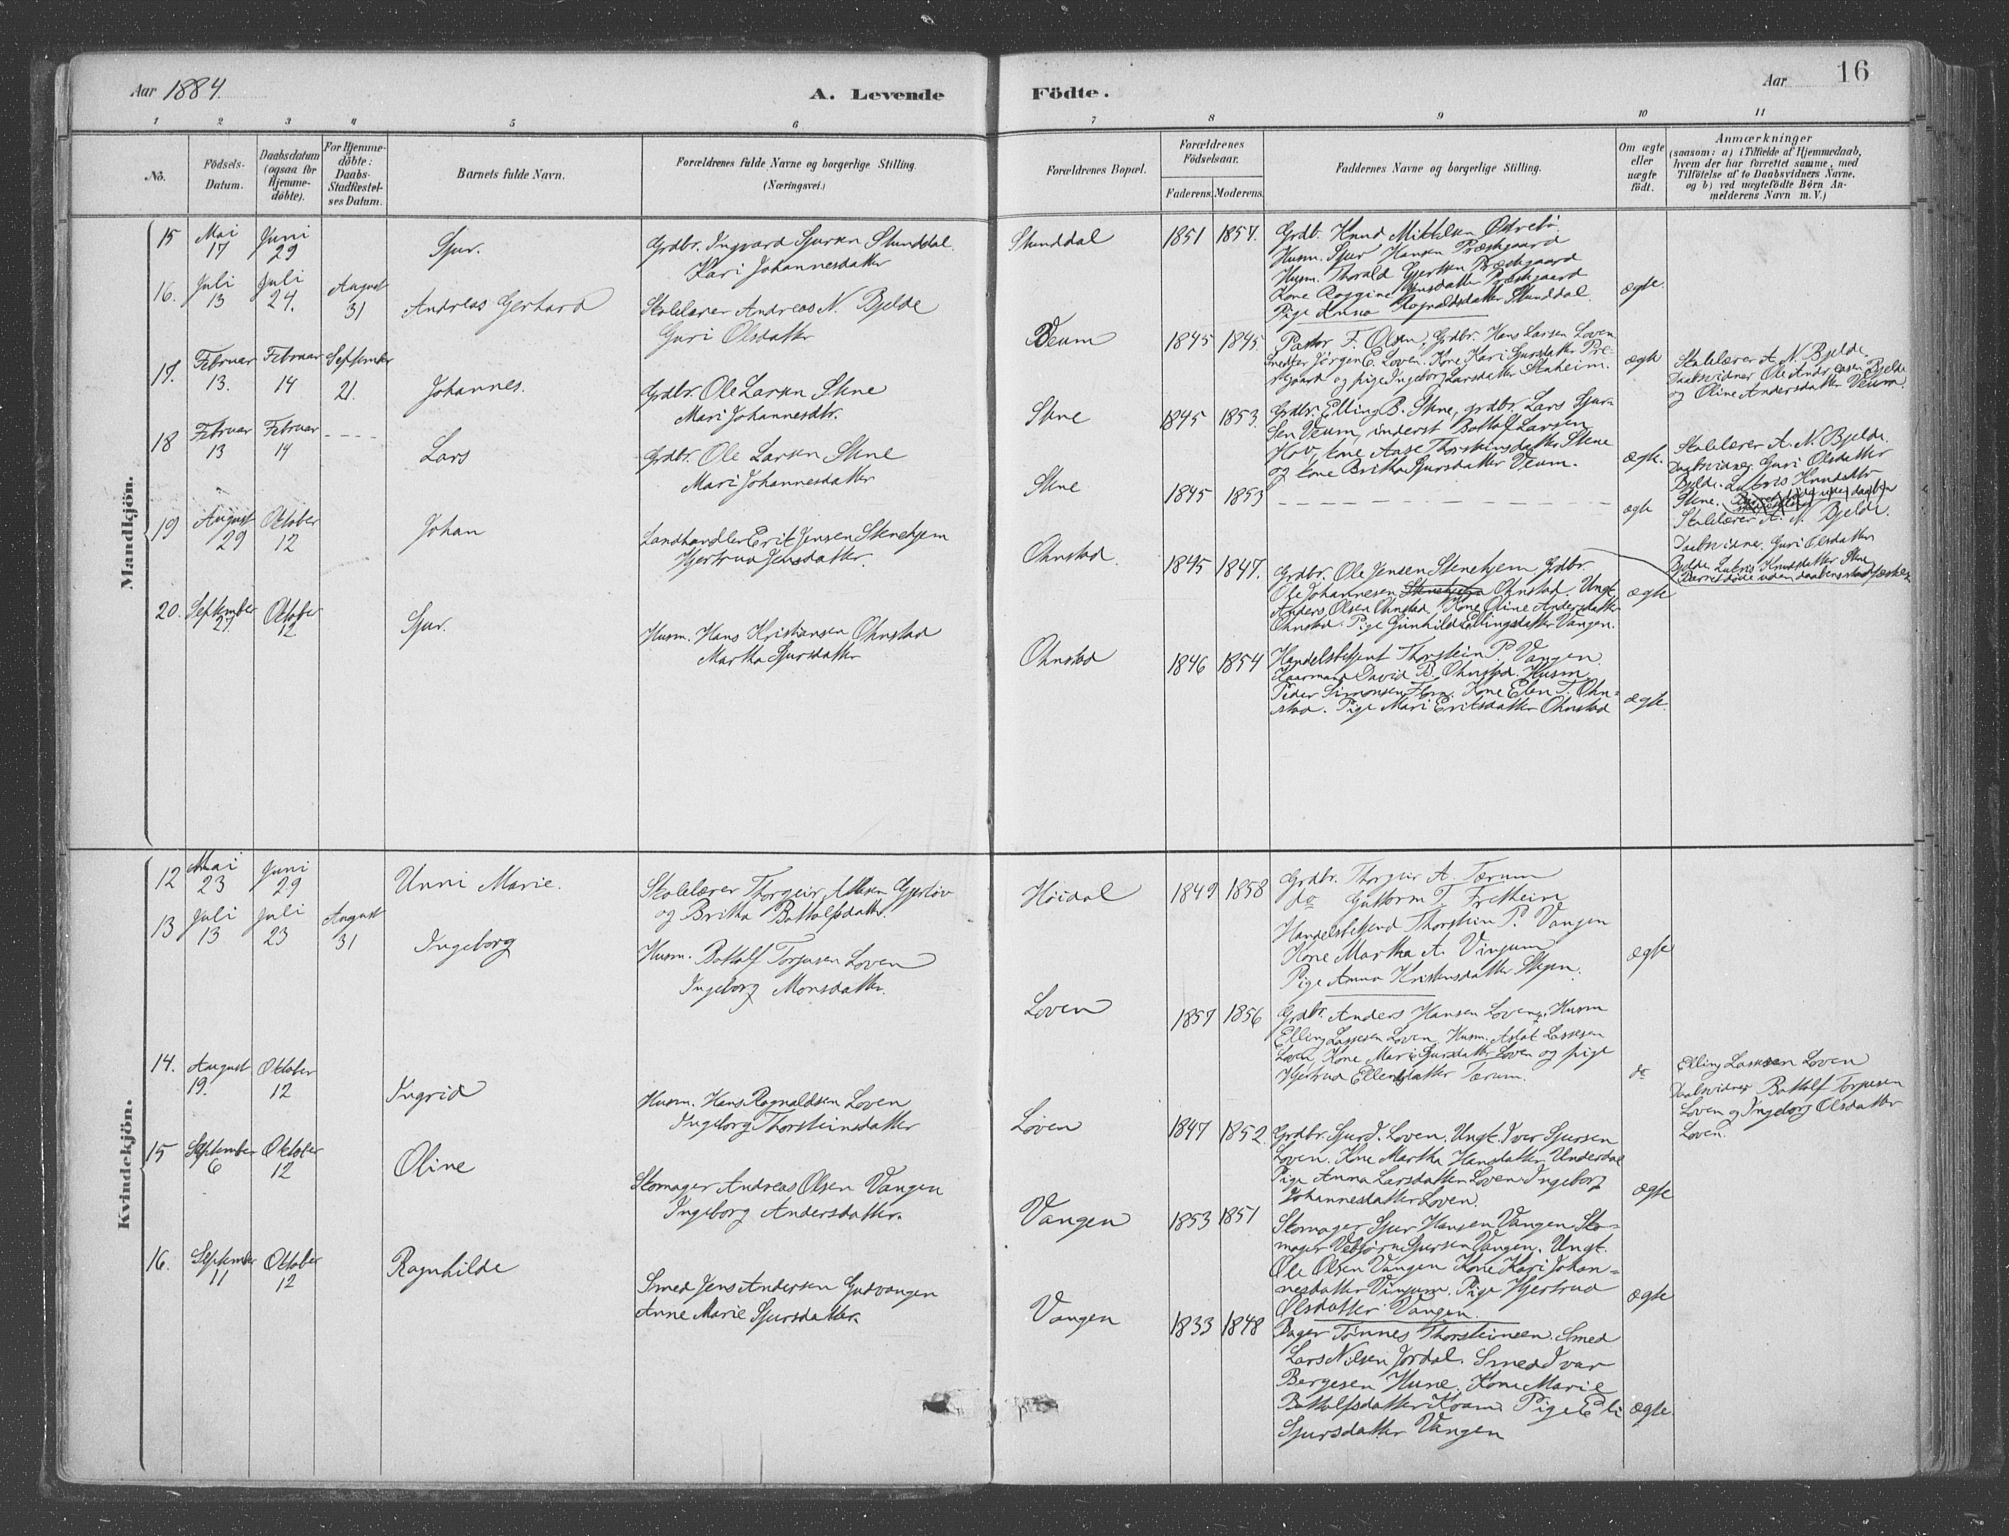 Aar 1884.
A. Levende
Födte.
Aar
16
1 2 3 4 5 6 7 8 9 10 11
No.
Födsels-
Datum.
Daabsdatum
(ogsaa for
Hjemme-
döbte).
For Hjemme-
döbte:
Daabs-
Stadfæstel-
ses Datum.
Barnets fulde Navn.
Forældrenes fulde Navne og borgerlige Stilling.
(Næringsvei.)
Forældrenes Bopæl.
Forældrenes
Födselsaar.
Faderens. Moderens.
Faddernes Navne og borgerlige Stilling.
Om ægte
eller
uægte
født.
Anmærkninger
(saasom: a) i Tilfælde af Hjemmedaab,
hvem der har forrettet samme, med
Tilföielse af to Daabsvidners Navne.
og b) ved uægtefödte Börn An-
melderens Navn m. V.)
Mandkjön.
15 Mai 17 Juni 29
Sjur.
Grdbr. Ingvard Sjursen Skunddal
Kari Johannesdatter
Skunddal
1851 1857.
Grdb. Knud Mikkelsen Østrebø
Husm. Sjur Hansen Præstgaard
Husm. Thorald Gjertsen Præstgaard
Kone Præstgaard
Pige Anna Rognaldsdatter Skunddal.
ægte.
16. Juli 13 Juli 24. August 31
Andreas Gerhard
Skolelærer Andreas N. Bjelde
Guri Olsdatter
Veum
1845 1845.
Pastor F. Olsen, Grdbr. Hans Larsen Loven
Smedfør Jörgen E. Loven. Kone Kari Sjursdatter Præ-
stgaard og pige Ingeborg Larsdatter Stadheim.
ægte
Skolelærer A. N. Bjelde.
Daabsvidner Ole Andreasen Bjelde
og Oline Andersdatter Veum
17. Februar 13. Februar 14 September 21.
Johannes.
Grdbr. Ole Larsen Skne
Mari Johannesdtr.
Skne
1845 1853.
Grdbr. Elling B. Skne, grdbr. Lars Sjur-
sen Veum, inderst Bottolf Larsen
Hov, kone Aase Thorsteinsdatter Skne
og kone Britha Sjursdatter Veum.
ægte.
Skolelærer A. N. Bjelde.
Daabsvidner Guri Olsdatter
Bjelde. Lukris Knudsdtr
Skne.
18 Februar 13 Februar 14 - - - -
Lars
Grdbr. Ole Larsen Skne
Mari Johannesdatter
Skne
1845 1853
- - - - - - - -
ægte
Skolelærer A. N. Bjelde.
Daabsvidner. Guri Olsdatter
Bjelde Lukris Knudsdatter Skne
Barnet døde uden daabens stadfæstelse
19 August 29 Oktober 12
Johan
Landhandler Erik Jensen Stenehjem
Hjertrud Jensdatter.
Ohnstad.
1845 1847.
Grdbr. Ole Jensen Stenehjem Grdbr.
Ole Johannesen Stenehjem Ohnstad, Ungk.
Anders Olsen Ohnstad, Kone Oline Andersdatter
Ohnstad. Pige Gunhild Ellingsdatter Vangen.
ægte
20. September 27 Oktober 12
Sjur.
Husm. Hans Kristiansen Ohnstad
Martha Sjursdatter
Ohnstad
1846 1854
Handelsbetjent Thorstein P. Vangen.
Kaarmand David B. Ohnstad. Husm.
Peder Simonsen Flom. Kone Elen T. Ohn-
stad. Pige Mari Eriksdatter Ohnstad
ægte.
Kvindekjön.
12 Mai 23 Juni 29
Unni Marie.
Skolelærer Thorgeir Gjesløv
og Britha Bottolfsdatter.
Höidal
1849 1858
Grdbr. Thorgeir A. Tærum
do Guttorm T. Fretheim
Handelsbetjend Thorstein P. Vangen
Kone Martha A. Vinjum
Pige Anna Kristensdatter Skjen.
ægte
13 Juli 13 Juli 23 August 31
Ingeborg
Husm. Bottolf Torjusen Loven
Ingeborg Monsdatter.
Loven
1857 1856
Grdbr. Anders Hansen Loven. Husm
Elling Lassesen Loven, Husm. Aslak Lassesen
Loven, Kone Mari Sjursdatter Loven og pige
Hjertrud Ellensdatter Tærum.
do
Elling Lassesen Loven
Daabsvidner Bottolf Torjusen
Loven og Ingeborg Olsdatter
Loven.
14. August 19. Oktober 12
Ingrid
Husm. Hans Rognaldsen Loven
Ingeborg Thorsteinsdatter
Loven
1847 1852.
Grdbr. Sjur J. Loven. Ungk. Iver Sjursen
Loven. Kone Martha Hansdatter Underdal
Pige Anna Larsdatter Loven Ingeborg
Johannesdatter Loven.
ægte
15 September 6 Oktober 12
Oline
Skomager Andreas Olsen Vangen
Ingeborg Andersdatter.
Vangen
1853 1851
Skomager Sjur Hansen Vangen Sko-
mager Vebjørn Sjursen Vangen. Ungk.
Ole Olsen Vangen Kone Kari Johan-
nesdatter Vinjum. Pige Hjertrud
Olsdatter Vangen.
ægte
16. September 11 Oktober 12
Ragnhilde
Smed Jens Andersen Gudvangen
Anne Marie Sjursdatter.
Vangen
1833 1848
Bager Tønnes Thorsteinsen. Smed
Lars Nilsen Jordal. Smed Ivar
Bergesen Husne. Kone Marie
Bottolfsdatter Kvam Pige Eli
Sjursdatter Vangen
ægte.